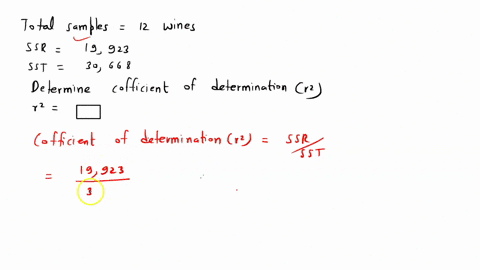 Total samples = 12 wines
SSR = 19,923
SST = 30,668
Determine coefficient of determination (r²)
r² =
Coefficient of determination (r²) = SSR/SST
= 19,923
3